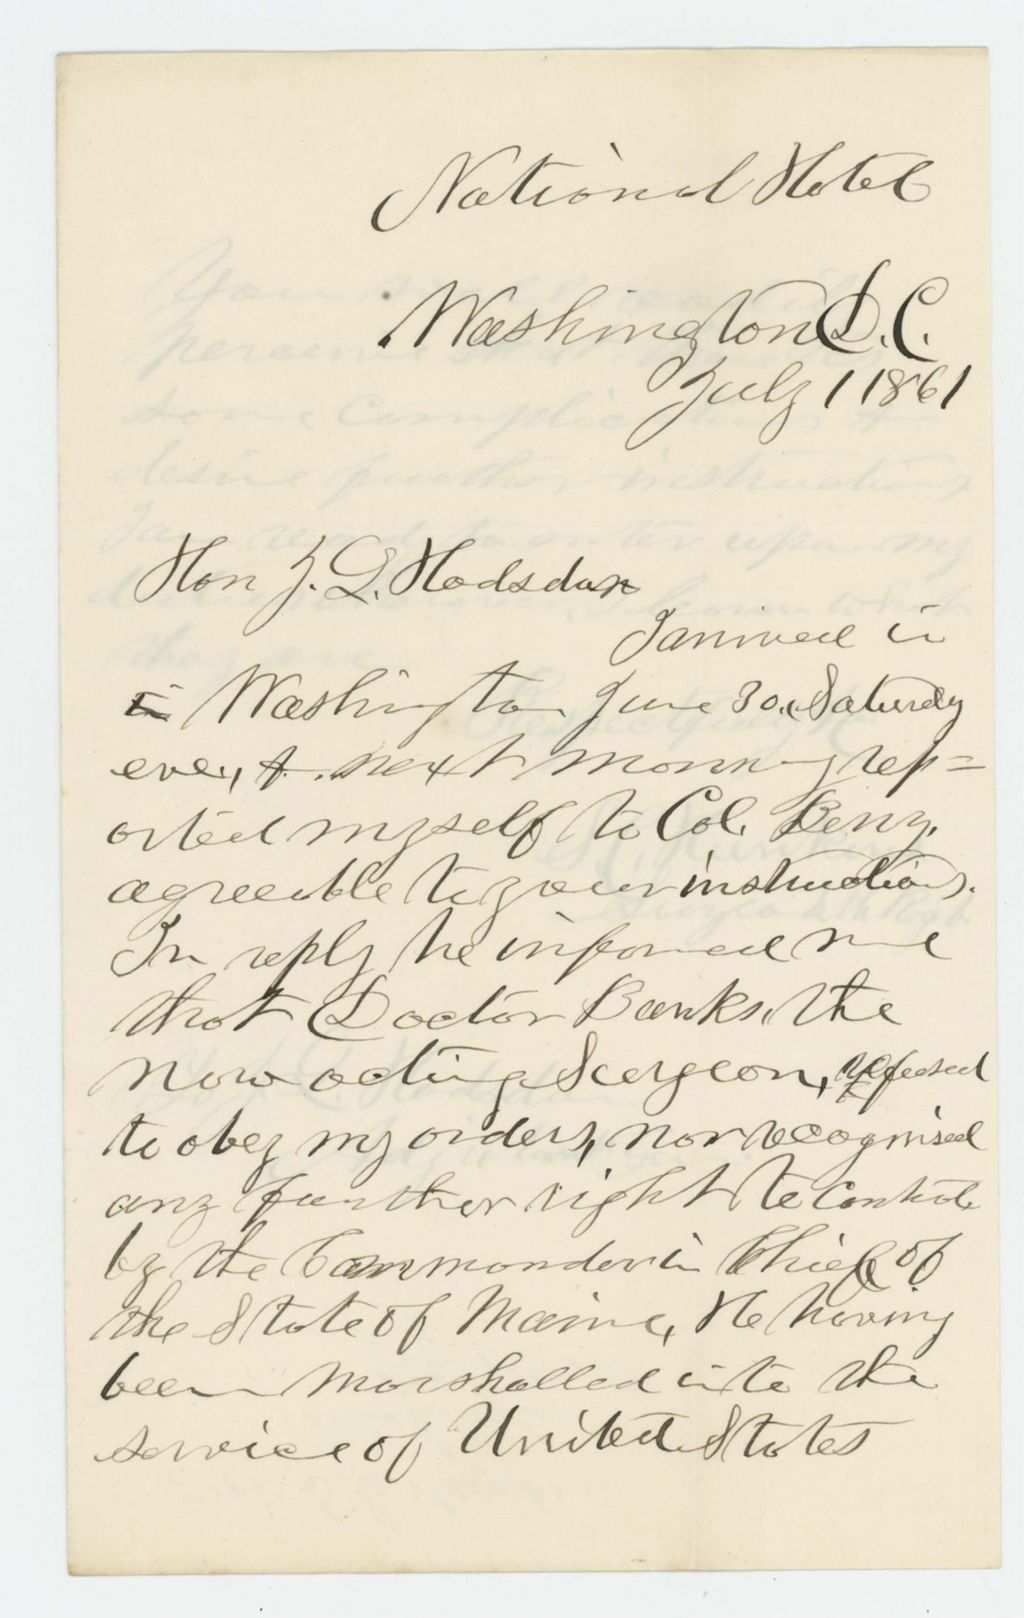 National Hotel
Washington D.C.
July 1 1861
Hon J. L. Hodsdon
I arrived in
in Washington June 30, Saturday
eve, & next morning rep=
orted myself to Col. Berry.
agreeable to your instructions.
In reply he informed me
that Doctor Banks, the
now acting Surgeon, refused
to obey my orders, nor recognised
any further right to control
by the Commander in Chief of
the State of Maine, He having
been marshalled into the
service of United States